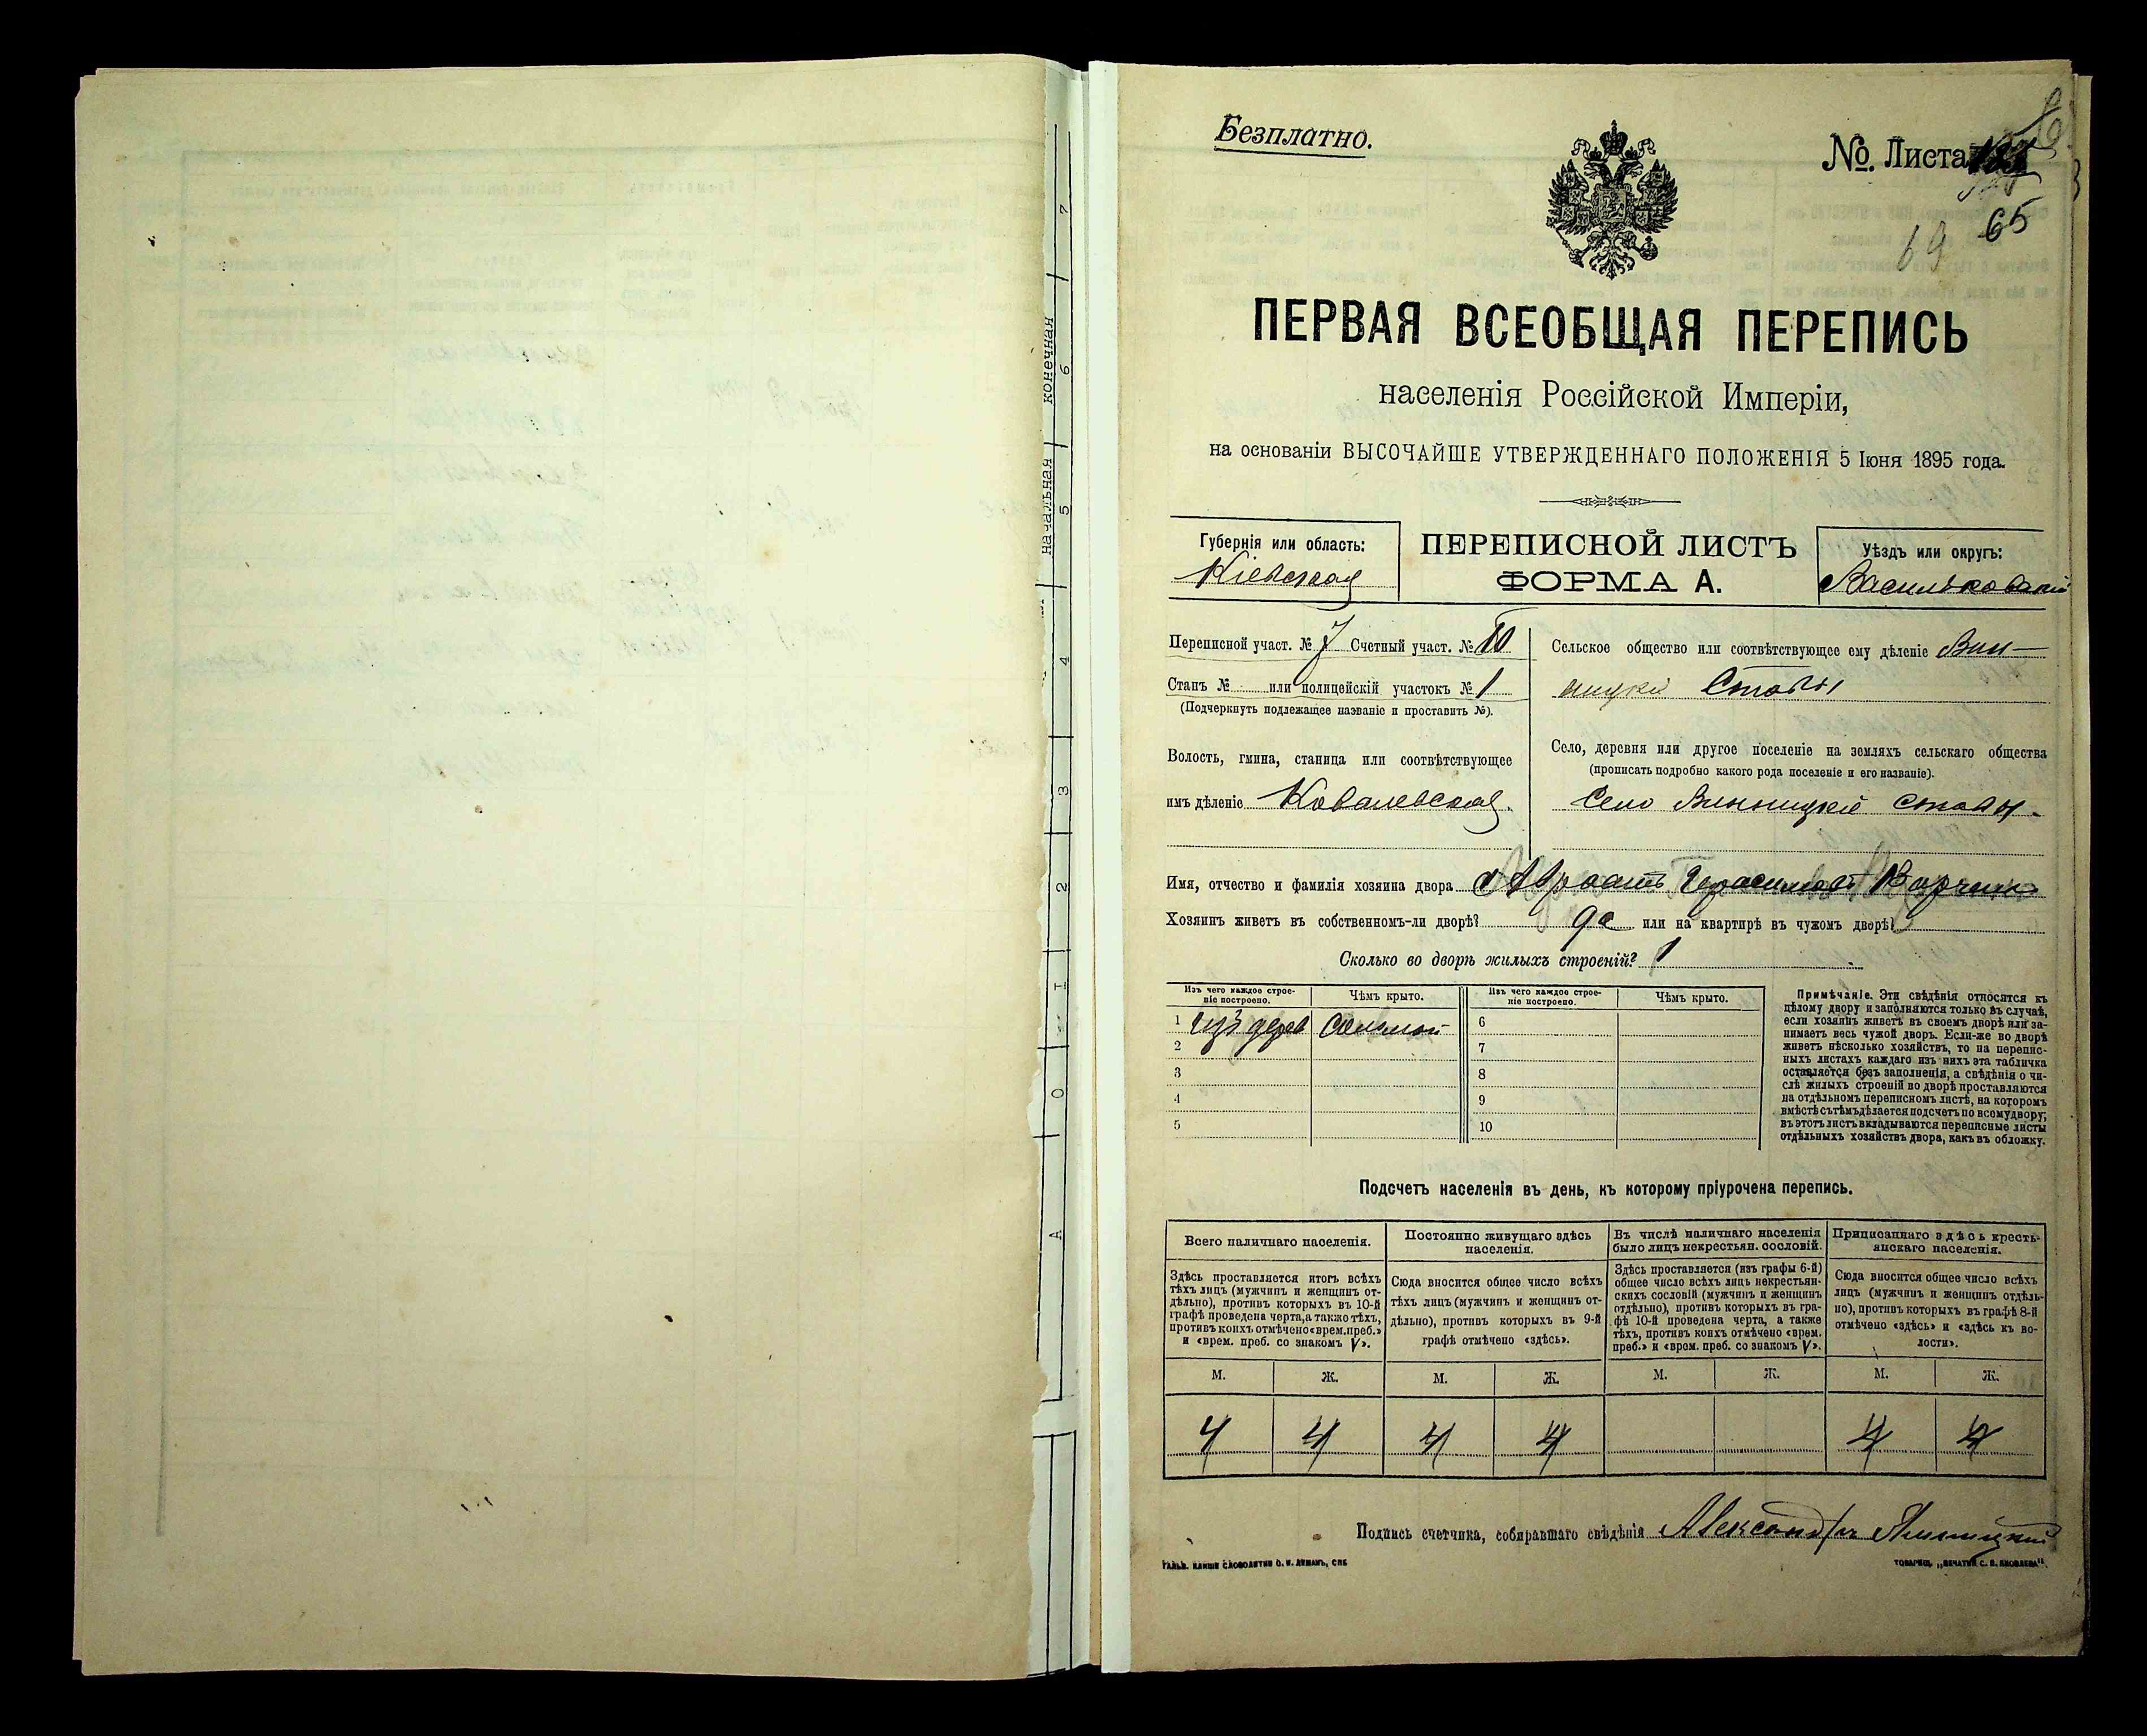 Безплатно.
№ Листа
65
69
ПЕРВАЯ ВСЕОБЩАЯ ПЕРЕПИСЬ
населенія Россійской Имперіи,
на основаніи ВЫСОЧАЙШЕ УТВЕРЖДЕННАГО ПОЛОЖЕНІЯ 5 Іюня 1895 года.
Губернія или область:
Кіевская
ПЕРЕПИСНОЙ ЛИСТЪ
ФОРМА А.
Уѣздъ или округъ:
Васильковскій
Переписной участ. № 7 Счетный участ. № 10
Станъ № или полицейскій участокъ № 1
(Подчеркнуть подлежащее названіе и проставить №).
Волость, гмина, станица или соотвѣтствующее
имъ дѣленіе Ковалевская.
Сельское общество или соотвѣтствующее ему дѣленіе Вин-
ницкія Ставы
Село, деревня или другое поселеніе на земляхъ сельскаго общества
(прописать подробно какого рода поселеніе и его названіе).
Село Винницкія Ставы.
Имя, отчество и фамилія хозяина двора Герасимовъ
Хозяинъ живетъ въ собственномъ-ли дворѣ? да или на квартирѣ въ чужомъ дворѣ?
Сколько во дворѣ жилыхъ строеній? 1
Изъ чего каждое строе-
ніе построено.
Чѣмъ крыто.
Изъ чего каждое строе-
ніе построено.
Чѣмъ крыто.
1 Изъ дерев Соломой
2
3
4
5
6
7
8
9
10
Примѣчаніе. Эти свѣдѣнія относятся къ
цѣлому двору и заполняются только въ случаѣ,
если хозяинъ живетъ въ своемъ дворѣ или за-
нимаетъ весь чужой дворъ. Если-же во дворѣ
живетъ нѣсколько хозяйствъ, то на перепис-
ныхъ листахъ каждаго изъ нихъ эта табличка
оставляется безъ заполненія, а свѣдѣнія о чи-
слѣ жилыхъ строеній во дворѣ проставляются
на отдѣльномъ переписномъ листѣ, на которомъ
вмѣстѣ съ тѣмъ дѣлается подсчетъ по всему двору;
въ этотъ листъ вкладываются переписные листы
отдѣльныхъ хозяйствъ двора, какъ въ обложку.
Подсчетъ населенія въ день, къ которому пріурочена перепись.
Всего наличнаго населенія.
Здѣсь проставляется итогъ всѣхъ
тѣхъ лицъ (мужчинъ и женщинъ от-
дѣльно), противъ которыхъ въ 10-й
графѣ проведена черта, а также тѣхъ,
противъ коихъ отмѣчено «врем. преб.»
и «врем. преб. со знакомъ V».
Постоянно живущаго здѣсь
населенія.
Сюда вносится общее число всѣхъ
тѣхъ лицъ (мужчинъ и женщинъ от-
дѣльно), противъ которыхъ въ 9-й
графѣ отмѣчено «здѣсь».
Въ числѣ наличнаго населенія
было лицъ некрестьян. сословій.
Здѣсь проставляется (изъ графы 6-й)
общее число всѣхъ лицъ некрестьян-
скихъ сословій (мужчинъ и женщинъ
отдѣльно), противъ которыхъ въ гра-
фѣ 10-й проведена черта, а также
тѣхъ, противъ коихъ отмѣчено «врем.
преб.» и «врем. преб. со знакомъ V».
Приписаннаго здѣсь кресть-
янскаго населенія.
Сюда вносится общее число всѣхъ
лицъ (мужчинъ и женщинъ отдѣль-
но), противъ которыхъ въ графѣ 8-й
отмѣчено «здѣсь» и «здѣсь къ во-
лости».
М. Ж. М. Ж. М. Ж. М. Ж.
4 4 4 4 4 4
Подпись счетчика, собиравшаго свѣдѣнія Александръ
ГАЛЬВ. КЛИШЕ СЛОВОЛИТНИ О. И. ЛЕМАНЪ, СПБ
ТОВАРИЩ. „ПЕЧАТНИ С. П. ЯКОВЛЕВА".
начальная конечная
А О І 2 3 4 5 6 7